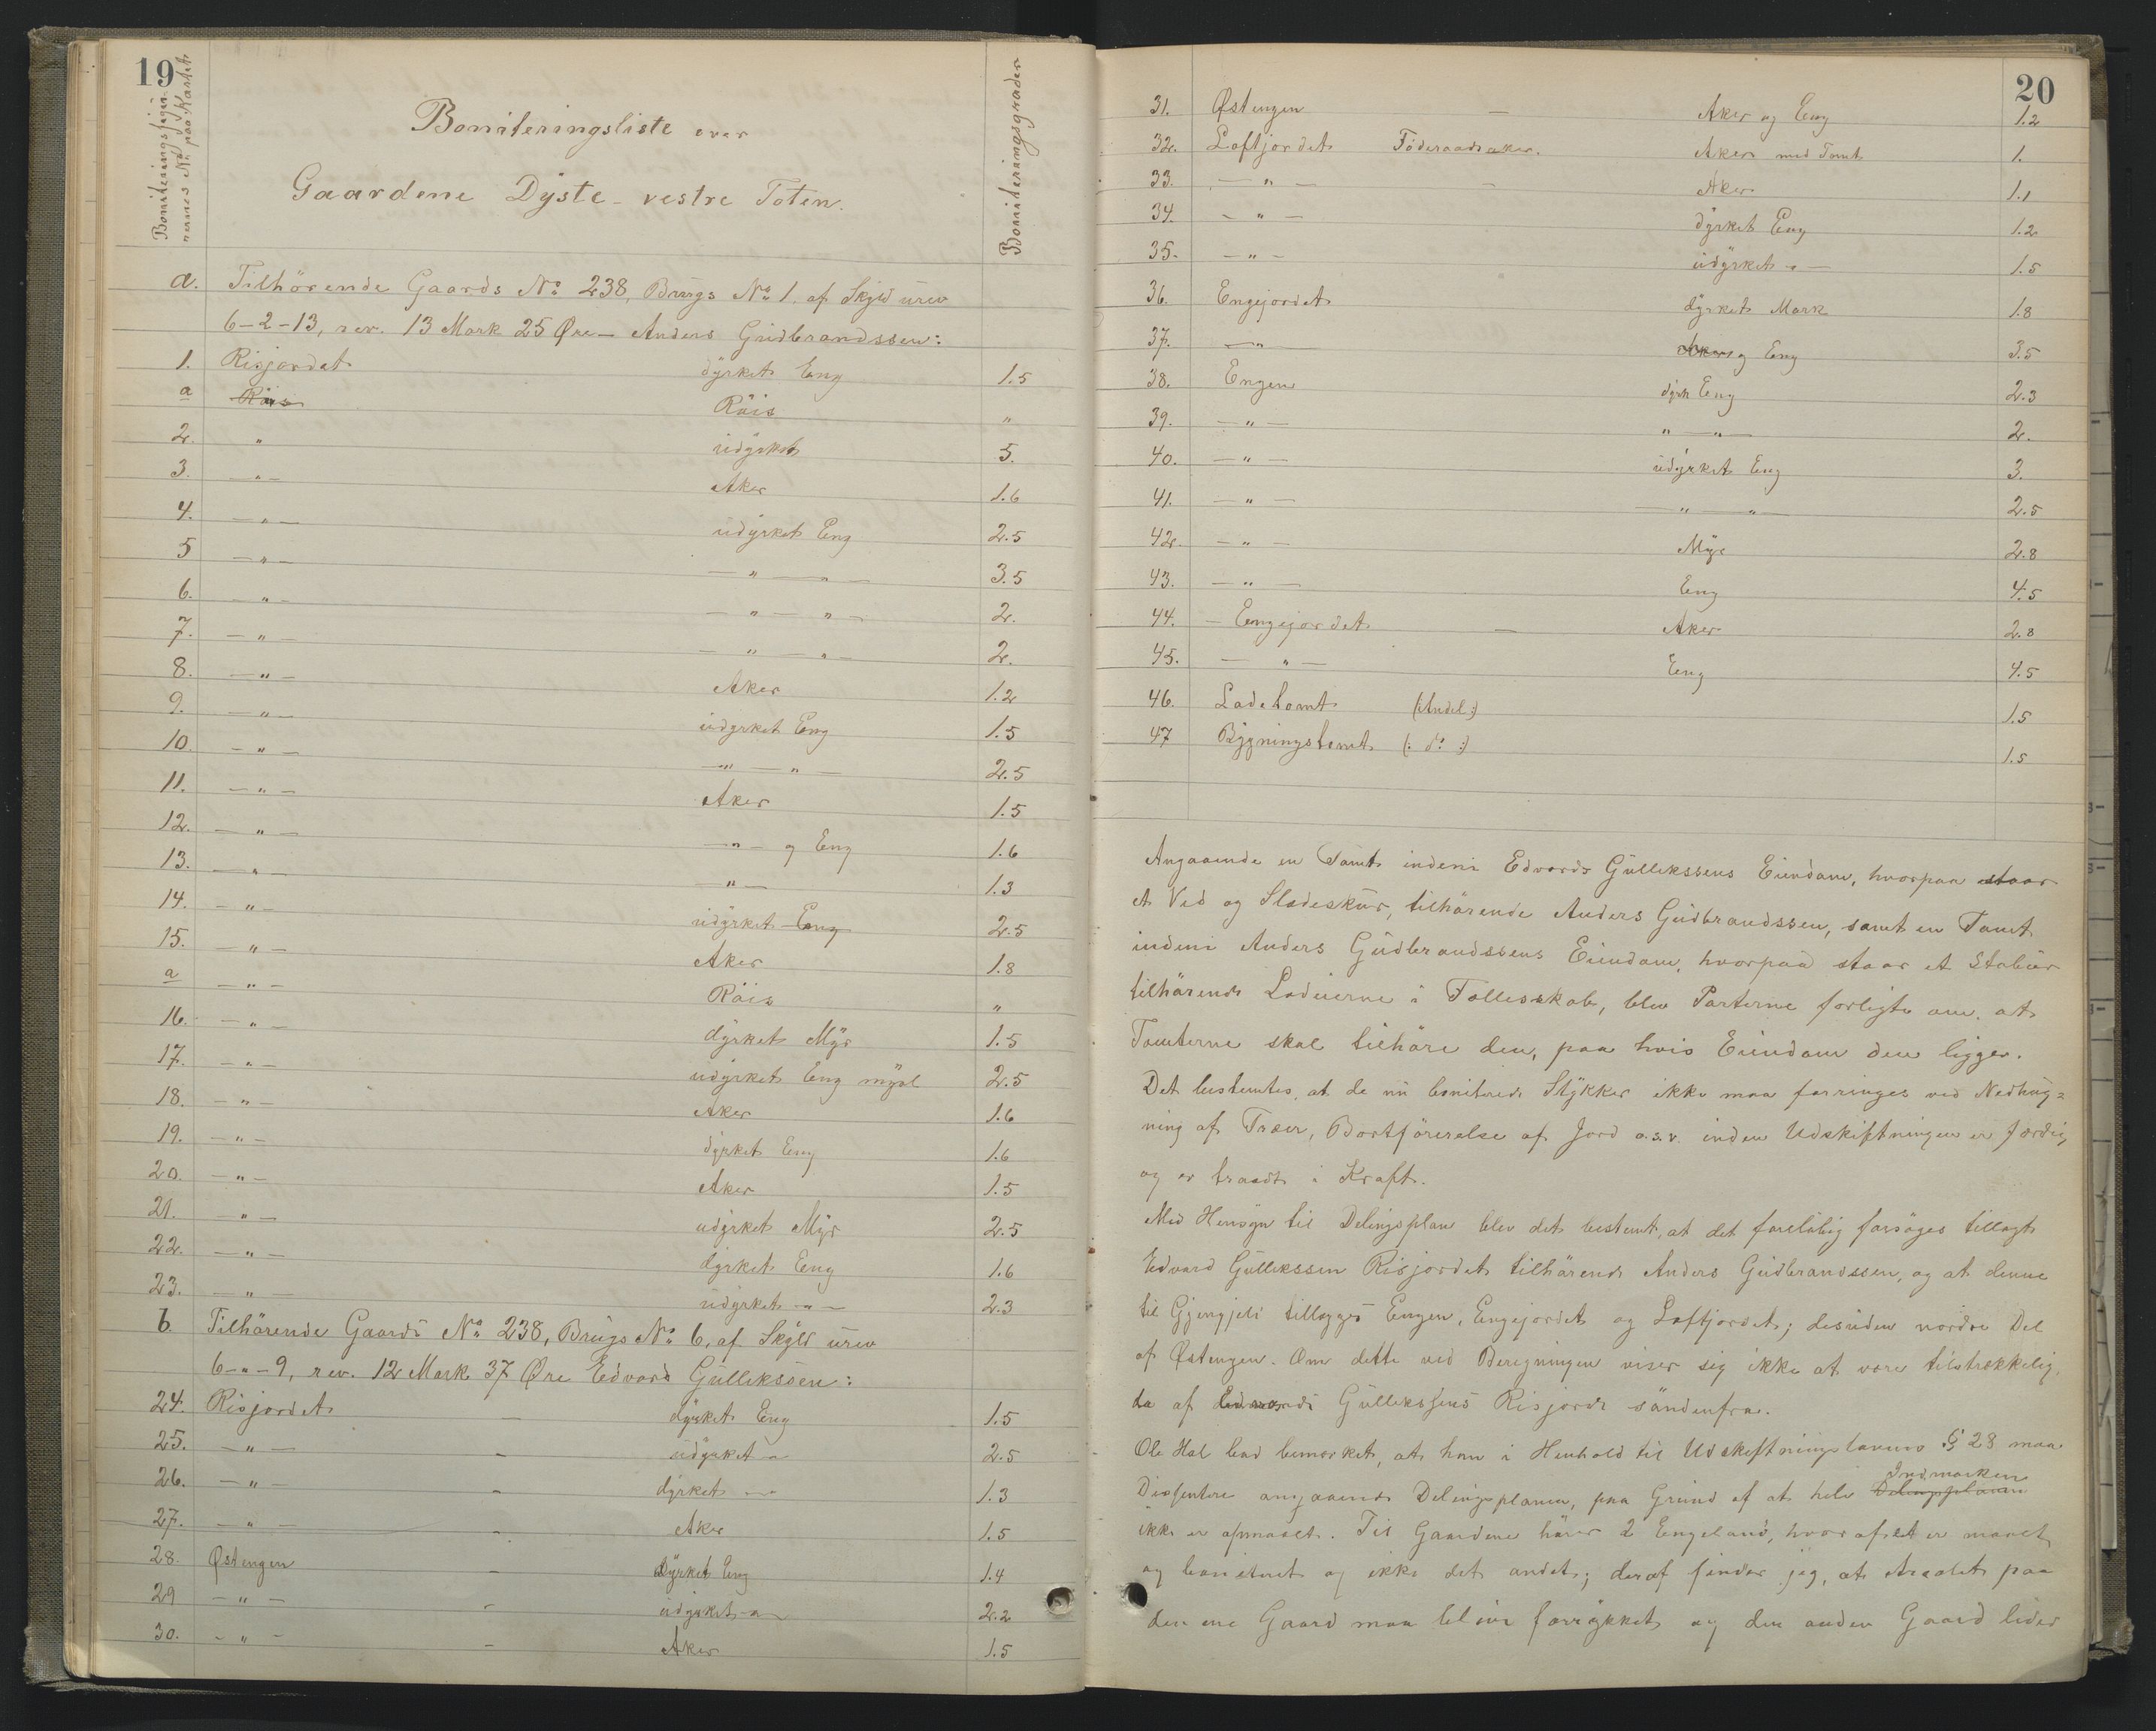 19
Boniteringsfigurernes No paa Kartet
Bonitteringsliste over
Gaardene Dyste - vestre Toten.
Boniteringsgrader
a. Tilhörende Gaards No 238, Brugs No 1. af Skyld urev
6-2-13, rev. 13 Mark 25 Øre - Anders Gudbrandssen:
1. Risjordet dyrket Eng 1.5
a Röis Röis "
2. " udyrket 5.
3. - " - Aker 1.6
4. - " - udyrket Eng 2.5
5 - " - - " - " - 3.5
6. - " - - " - " - 2.
7. - " - - " - " - 2.
8. - " - Aker 1.2
9. - " - udyrket Eng 1.5
10. - " - - " - " - 2.5
11. - " - Aker 1.5
12. - " - - " - og Eng 1.6
13. - " - - " - 1.3
14. - " - udyrket Eng 2.5
15. - " - Aker 1.8
a - " - Röis "
16. - " - dyrket Myr 1.5
17. - " - udyrket Eng myrl 2.5
18. - " - Aker 1.6
19. - " - dyrket Eng 1.6
20. - " - Aker 1.5
21. - " - udyrket Myr 2.5
22. - " - dyrket Eng 1.6
23. - " - udyrket - " - 2.3
b. Tilhörende Gaards No 238, Brugs No 6, af Skyld urev
6-"-9, rev. 12 Mark 37 Øre Edvard Gullikssen:
24. Risjordet - dyrket Eng 1.5
25. - " - - udyrket - " - 2.5
26. - " - - dyrket - " - 1.3
27. - " - - Aker 1.5
28. Østengen - Dyrket Eng 1.4
29 - " - - udyrket - " - 2.2
30. - " - - Aker 1.5
20
31. Østengen - Aker og Eng 1.2
32. Loftjordet Föderaadsaker. Aker med Tomt 1.
33. - " - - Aker 1.1
34. - " - dyrket Eng 1.2
35. - " - udyrket - " - 1.5
36. Engejordet dyrket Mark 1.8
37. - " - Aker og Eng 3.5
38. Engen dyrk Eng 2.3
39. - " - " - " - 2.
40. - " - udyrket Eng 3.
41. - " - - " - " - 2.5
42. - " - Myr 2.8
43. - " - Eng 4.5
44. - Engejordet - Aker 2.8
45. - " - Eng 4.5
46. Ladetomt (: Andel :) 1.5
47 Bygningstomt (: do :) 1.5
Angaaende en Tomt indeni Edvards Gullikssens Eiendom, hvorpaa staar
et Ved og Sladeskur, tilhörende Anders Gudbrandssen, samt en Tomt
indeni Anders Gudbrandssens Eiendom, hvorpaa staar et Stabur
tilhörende Lodeierne i Fællesskab, blev Parterne forligte om, at
Tomterne skal tilhöre den, paa hvis Eiendom den ligger.
Det bestemtes, at de nu boniterede Stykker ikke maa forringes ved Nedhug=
ning af Træer, Bortförerelse af Jord o.s.v. inden Udskiftningen er færdig
og er traadt i Kraft.
Med Hensyn til Delingsplan blev det bestemt, at det forelöbig forsöges tillagt
Edvard Gullikssen Risjordet tilhörende Anders Gudbrandssen, og at denne
til Gjengjeld tillægges Engen, Engejordet og Loftjordet; desuden nordre Del
af Østengen. Om dette ved Beregningen viser sig ikke at være tilstrækkelig,
da af Edvards Gullikssens Risjorde söndenfra.
Ole Hol bad bemærket, at han i Henhold til Udskiftningslovens § 28 maa
Dissentere angaaende Delingsplanen, paa Grund af at hele Delingsplanen Indmarken
ikke er opmaalt. Til Gaardene hörer 2 Engeland, hvoraf et er maalt
og boniteret og ikke det andet; deraf finder jeg, at Arealet paa
den ene Gaard maa blive forrykket og den anden Gaard lider